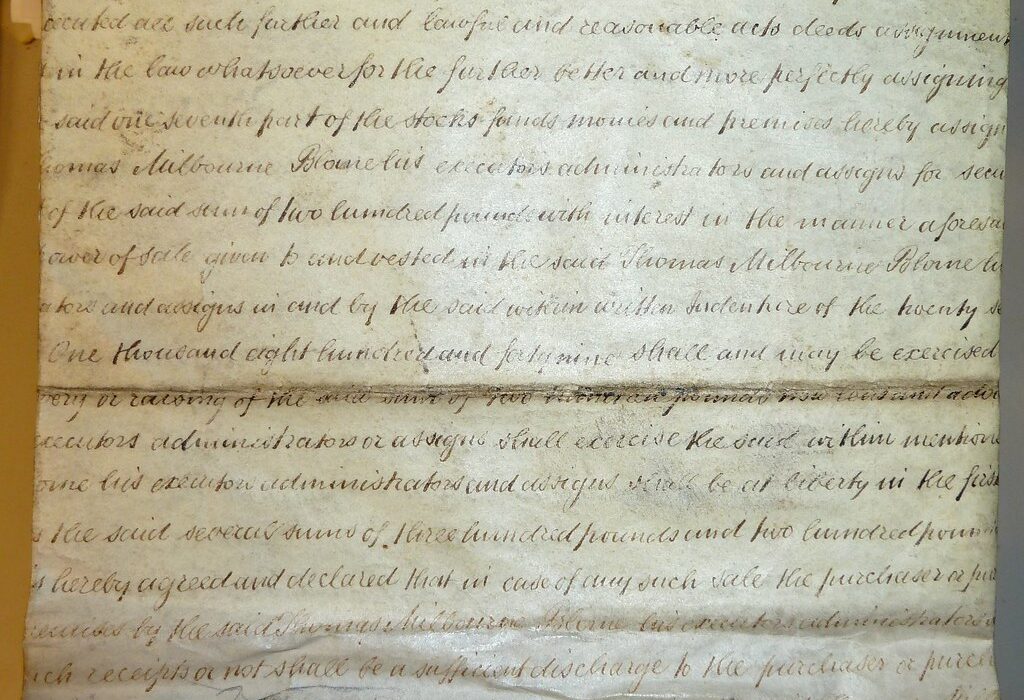 ecuted all such further and lawful and reasonable acts deeds assignment
in the law whatsoever for the further better and more perfectly assigning
said one seventh part of the stocks funds monies and premises hereby assign
homas Milbourne Blane his executors administrators and assigns for secu
of the said sum of two hundred pounds with interest in the manner aforesa
ower of sale given to and vested in the said Thomas Milbourne Blane h
ators and assigns in and by the said within written Indenture of the twenty se
One thousand eight hundred and forty nine shall and may be exercised
very or raising of the said sum of two hundred pounds now lent and adva
executors administrators or assigns shall exercise the said within mentione
ane his executors administrators and assigns shall be at liberty in the first
s the said several sums of three hundred pounds and two hundred pounds
is hereby agreed and declared that in case of any such sale the purchaser or pur
by the said Thomas Milbourne Blane his executors administrators
uch receipts or not shall be a sufficient discharge to the purchaser or purch